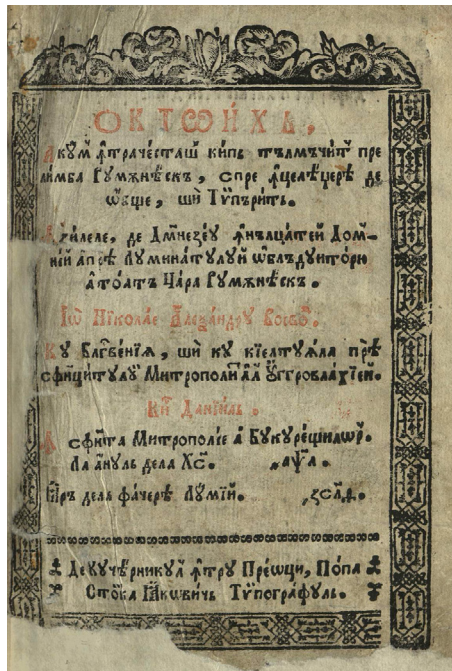 ОКТѠИХЪ,
Акꙋм ꙟтрачесташ кипь тълмъчит пре
лимба Рꙋмѫнѣскъ, спре ꙟцелѣџерѣ де
ѡбще, ши Тѵпъритъ.
Ꙟ Зилеле, де Дмнезеꙋ ꙟнълцатей Дом–
нїй апрѣ Лꙋминатꙋлꙋй ѡблъдꙋиторю
а тоатъ Цара Рꙋмѫнѣскъ.
Іѡ Нїколае Алеѯандрꙋ Воевод.
Кꙋ Блгвенїѧ, ши кꙋ кїелтꙋѧла прѣ
сфинцитꙋлꙋй Митрополит ал Оуггровлахїей.
Кѵр Данїилъ.
Ꙟ сфнта Митрополїе а Бꙋкꙋрещилѡр.
Ла анꙋль дела Хс. ҂аѱл.
Іар дела фачерѣ Лꙋмїй. ҂зсл.
Де кꙋчѣрникꙋл ꙟтрꙋ Преѡци, Попа
Стойка Іаковичь Тѵпографꙋль.